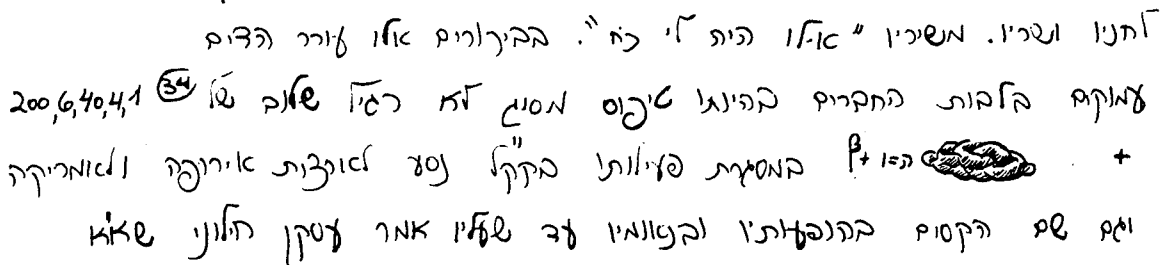 לחניו ושריו. משיריו "אילו היה לי כח". בביקורים אלו עורר הדים
עמוקים בלבות החברים בהיותו טיפוס מסוג לא רגיל שלוב של (34) 200,6,40,4,1
+ ה=1+β במסגרת פעילותו בקק"ל נסע לארצות אירופה ולאמריקה
וגם שם הקסים בהופעותיו ובנאומיו עד שעליו אמר עסקן חילוני שאם